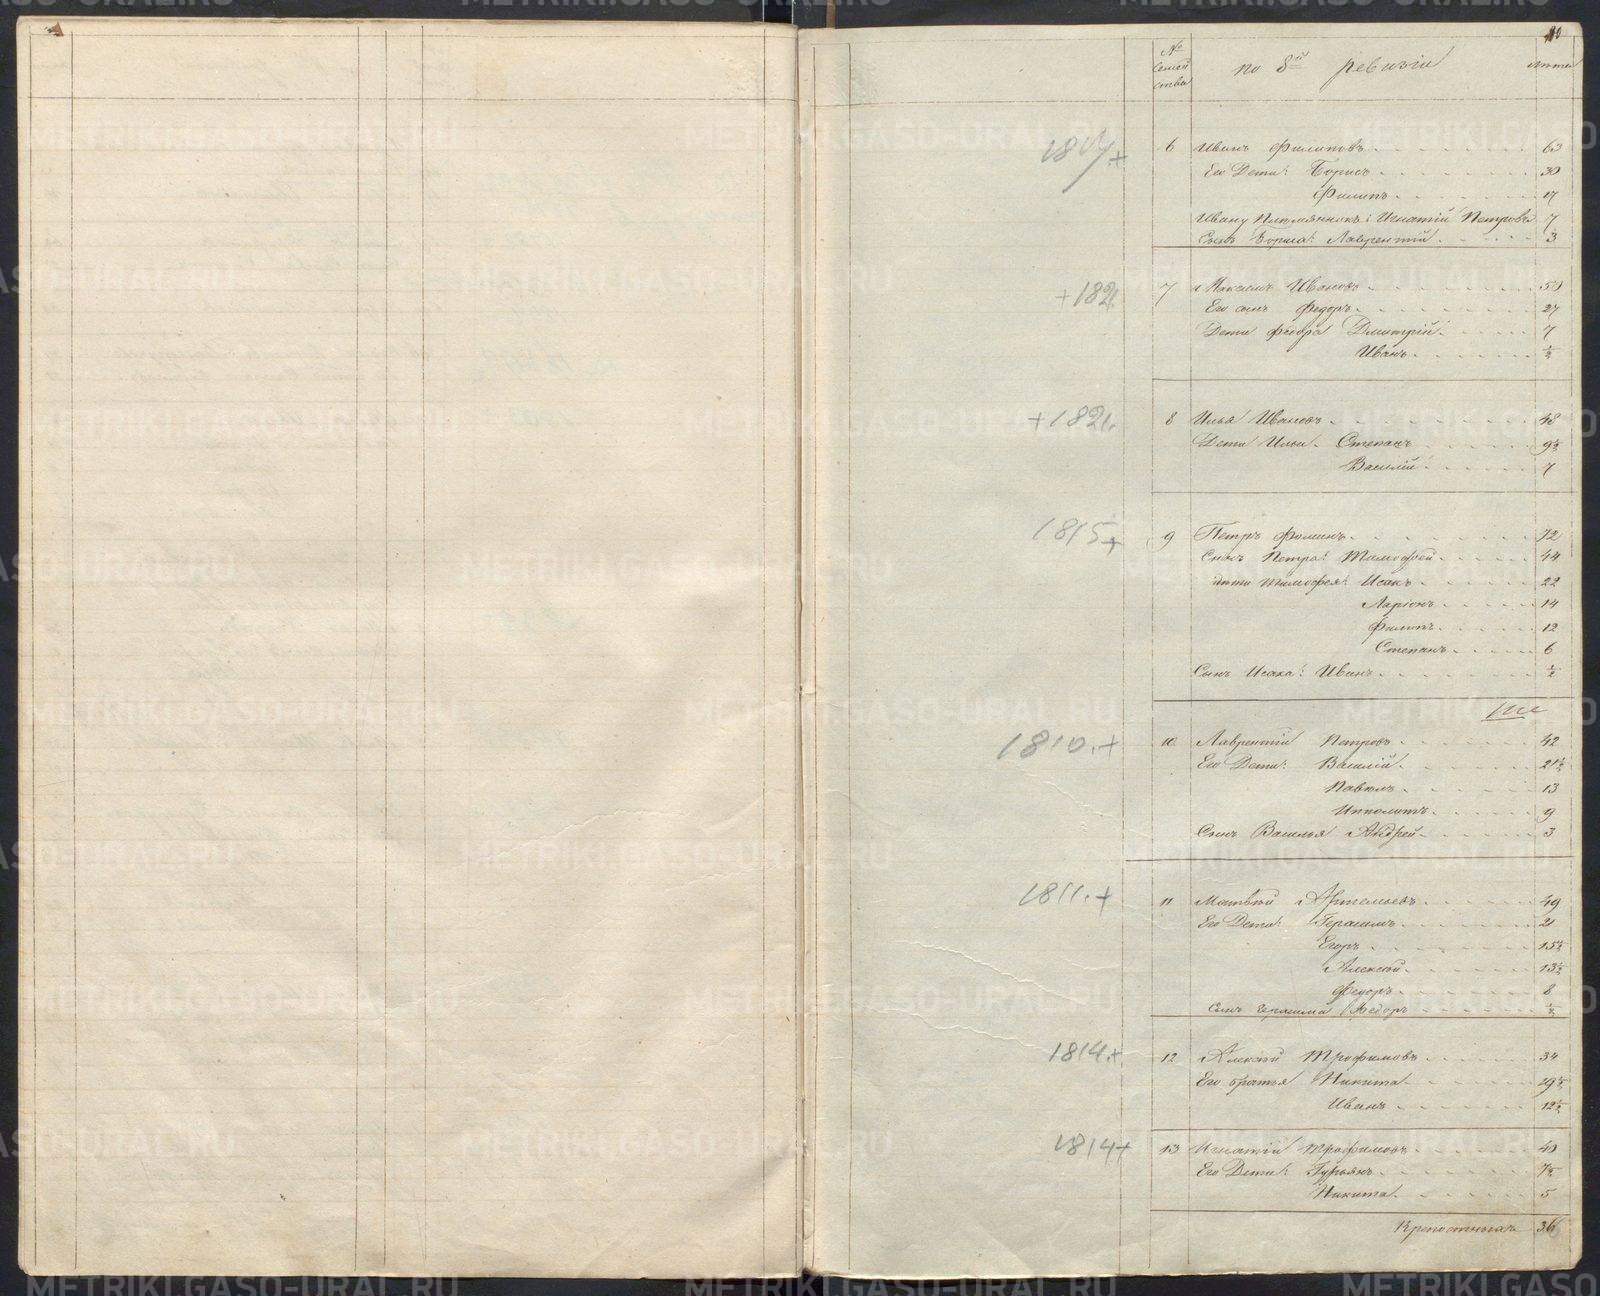 10
№ семей ства
по 8й ревизіи
лѣта
6 Иванъ Филиповъ 63
Его Дети: Борисъ 30
Филипъ 17
Ивану Племянникъ: Игнатій Петровъ 7
Сынъ Бориса: Лаврентій 3
+1821
7 Максимъ Ивановъ 50
Его сынъ Федоръ 27
Дети Федора Дмитрій 7
Иванъ ½
+1821.
8 Илья Ивановъ 48
Дети Ильи. Степанъ 9½
Василій 7
1815+
9 Петръ Фоминъ 72
Сынъ Петра: Тимофей 44
дети Тимофея: Исакъ 22
Ларіонъ 14
Филипъ 12
Степанъ 6
Сынъ Исака: Иванъ ½
1810.+
10 Лаврентій Петровъ 42
Его Дети: Василій 21½
Павелъ 13
Ипполитъ 9
Сынъ Василья Андрей 3
1811.+
11 Матвѣй Артемьевъ 49
Его Дети: Герасимъ 21
Егоръ 15½
Алексѣй 13½
Федоръ 8
Сынъ Герасима Федоръ ½
1814.+
12 Алексѣй Трофимовъ 34
Его братья Никита 29½
Иванъ 12½
1814+
13 Игнатій Трофимовъ 40
Его Дети: Гурьянъ 7½
Никита 5
Крепостныхъ 36
METRIKI.GASO-URAL.RU